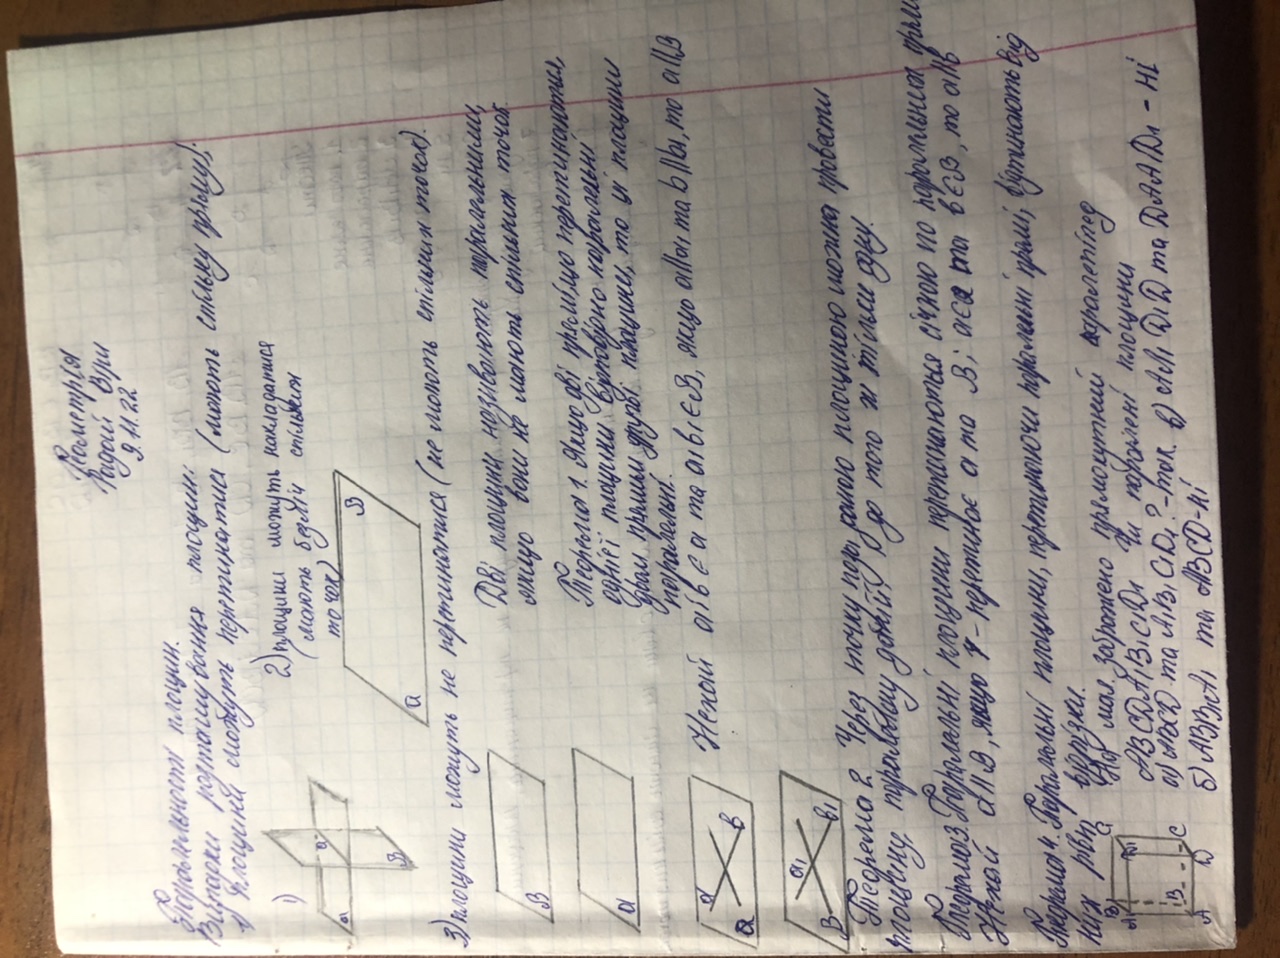 Геометрія
Гадзій Яри
9.11.22
Паралельність площин.
Випадки розташування площин:
1) Площини можуть перетинатися (мають спільну пряму).
1)
2) площини можуть накладатися
(мають безліч спільних
точок)
a
a
B
a
B
3) площини можуть не перетинатися (не мають спільних точок).
B
a
Дві площини називають паралельними,
якщо вони не мають спільних точок
Теорема 1. Якщо дві прямі, що перетинаються,
однієї площини відповідно паралельні
двом прямим другої площини, то ці площини
паралельні.
a
b
a
Нехай a i b є a та a1 b1 є B, якщо a||a1 та b||b1, то a||B
B
a1
b1
Теорема 2. Через точку поза даною площиною можна провести
площину паралельну даній і до того ж тільки одну.
Теорема 3. Паралельні площини перетинаються січною по паралельних прям
Нехай a||B, якщо γ - перетинає a та B; a є a та b є B, то a||b
Теорема 4. Паралельні площини, перетинаючи паралельні прямі, відтинають від
них рівні відрізки.
На мал зображено прямокутний паралепіпед
ABCDA1B1C1D1 Чи паралельні площини
а) ABCD та A1B1C1D1? - так. в) AA1D1D та DAA1D1 - ні
б) ABB1A1 та ABCD - ні
B1
C1
A1
D1
B
C
A
D